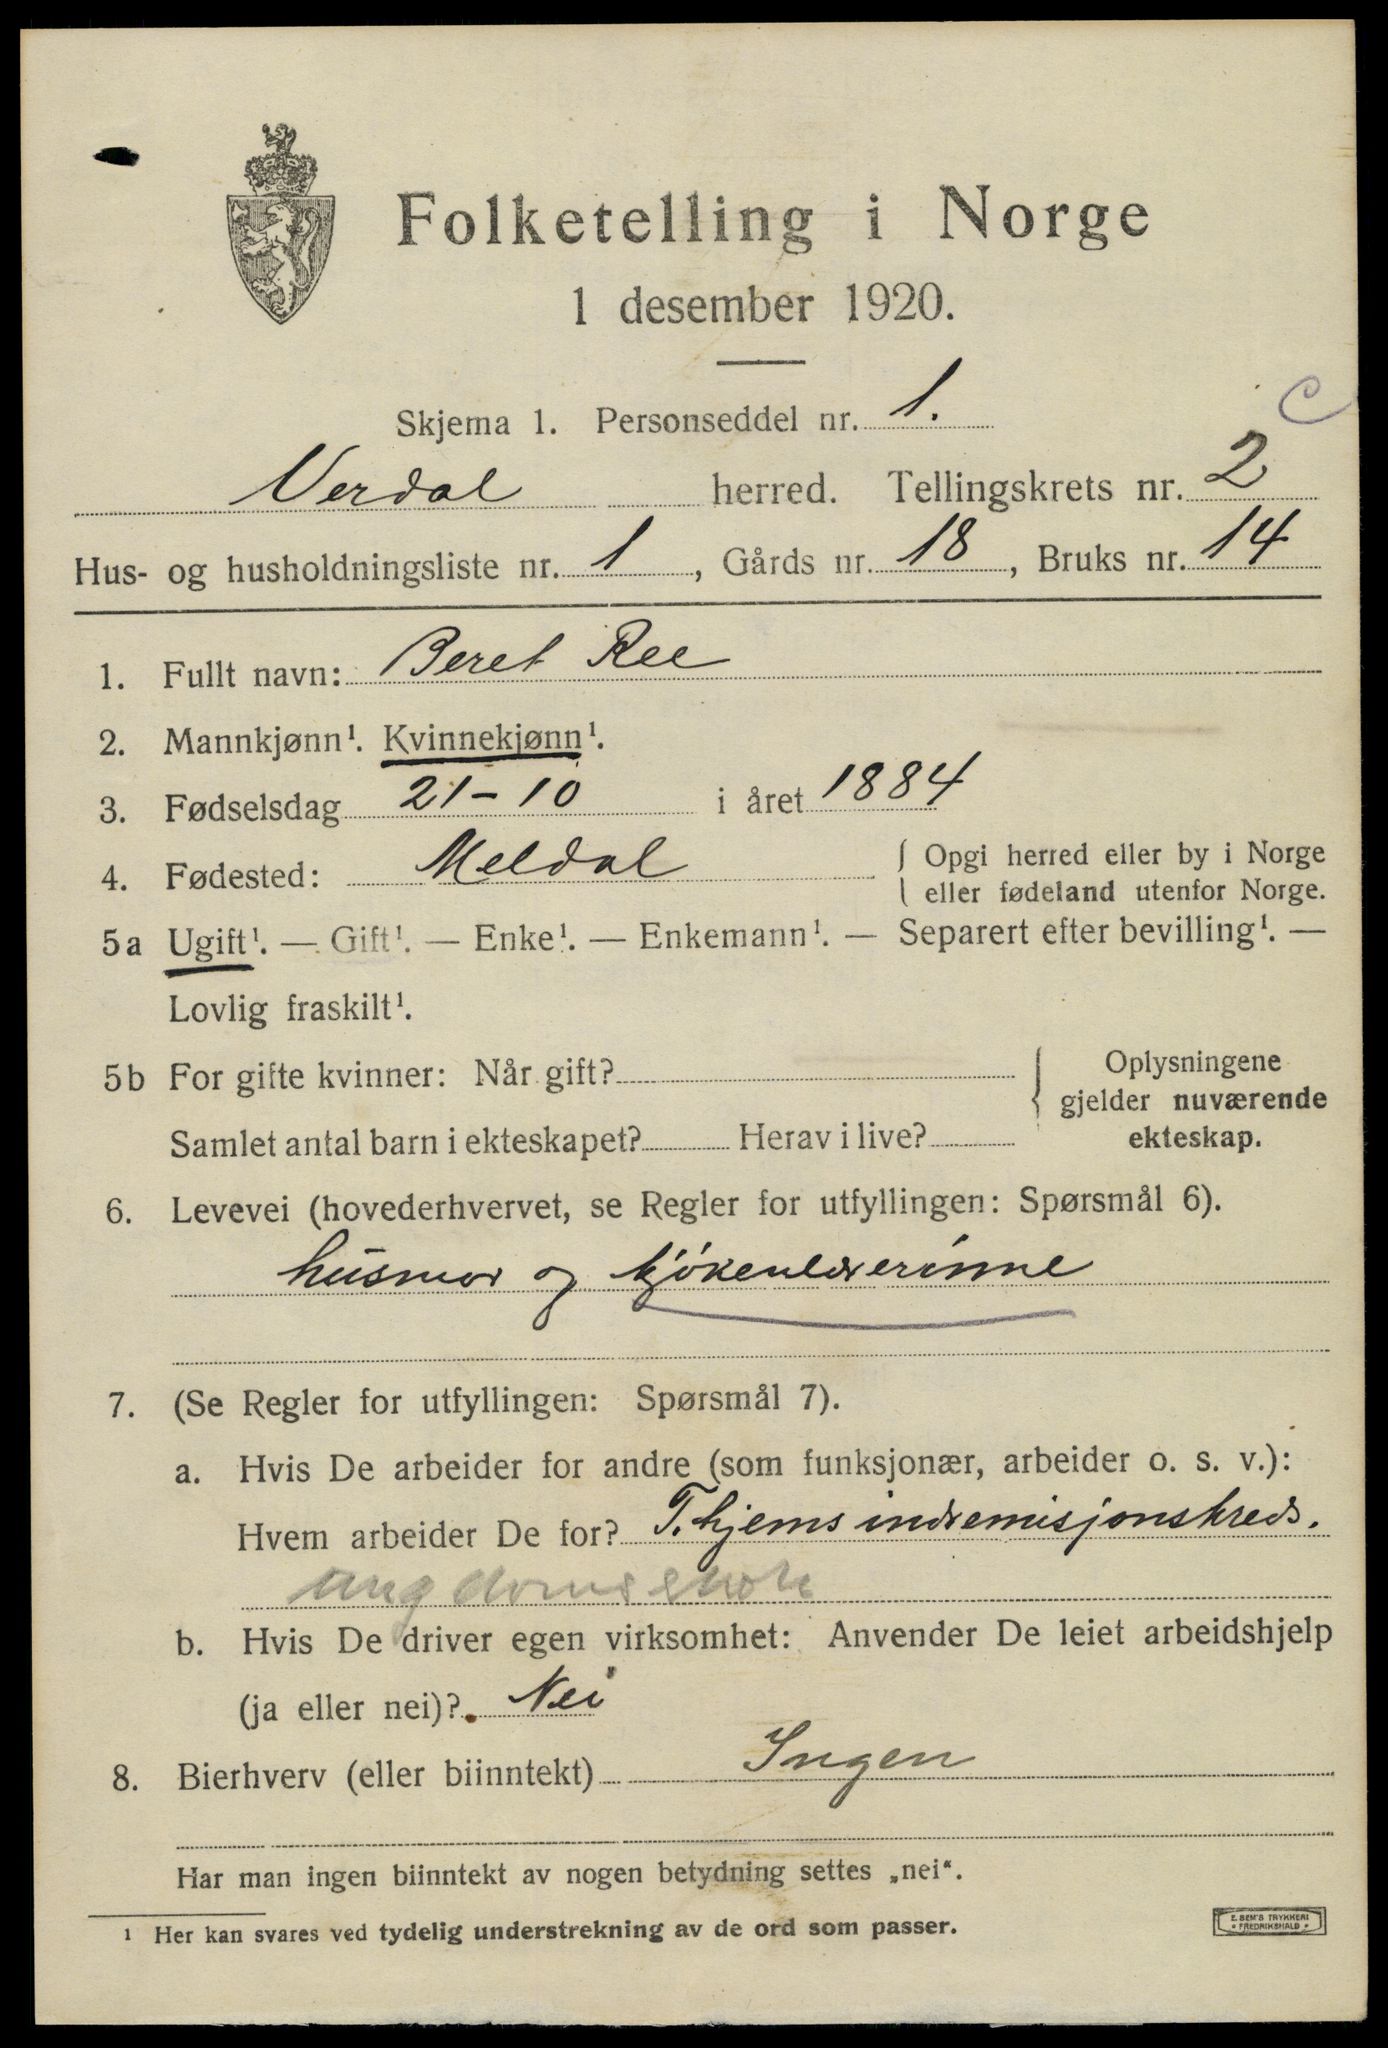 Folketelling i Norge
1 desember 1920.
Skjema 1. Personseddel nr. 1.
C
Verdal herred. Tellingskrets nr. 2
Hus- og husholdningsliste nr. 1, Gårds nr. 18, Bruks nr. 14
1. Fullt navn: Beret Ree
2. Mannkjønn¹. Kvinnekjønn¹.
3. Fødselsdag 21-10 i året 1884
4. Fødested: Meldal { Opgi herred eller by i Norge
eller fødeland utenfor Norge.
5a Ugift¹. — Gift¹. — Enke¹. — Enkemann¹. — Separert efter bevilling¹. —
Lovlig fraskilt¹.
5b For gifte kvinner: Når gift? { Oplysningene
gjelder nuværende
Samlet antal barn i ekteskapet? Herav i live? ekteskap.
6. Levevei (hovederhvervet, se Regler for utfyllingen: Spørsmål 6).
husmor og kjökenlærerinne
7. (Se Regler for utfyllingen: Spørsmål 7).
a. Hvis De arbeider for andre (som funksjonær, arbeider o. s. v.):
Hvem arbeider De for? T.hjems indremisjonskreds.
ungdomsskole
b. Hvis De driver egen virksomhet: Anvender De leiet arbeidshjelp
(ja eller nei)? Nei
8. Bierhverv (eller biinntekt) Ingen
Har man ingen biinntekt av nogen betydning settes „nei“.
¹ Her kan svares ved tydelig understrekning av de ord som passer.
E. SEM'S TRYKKERI
FREDRIKSHALD